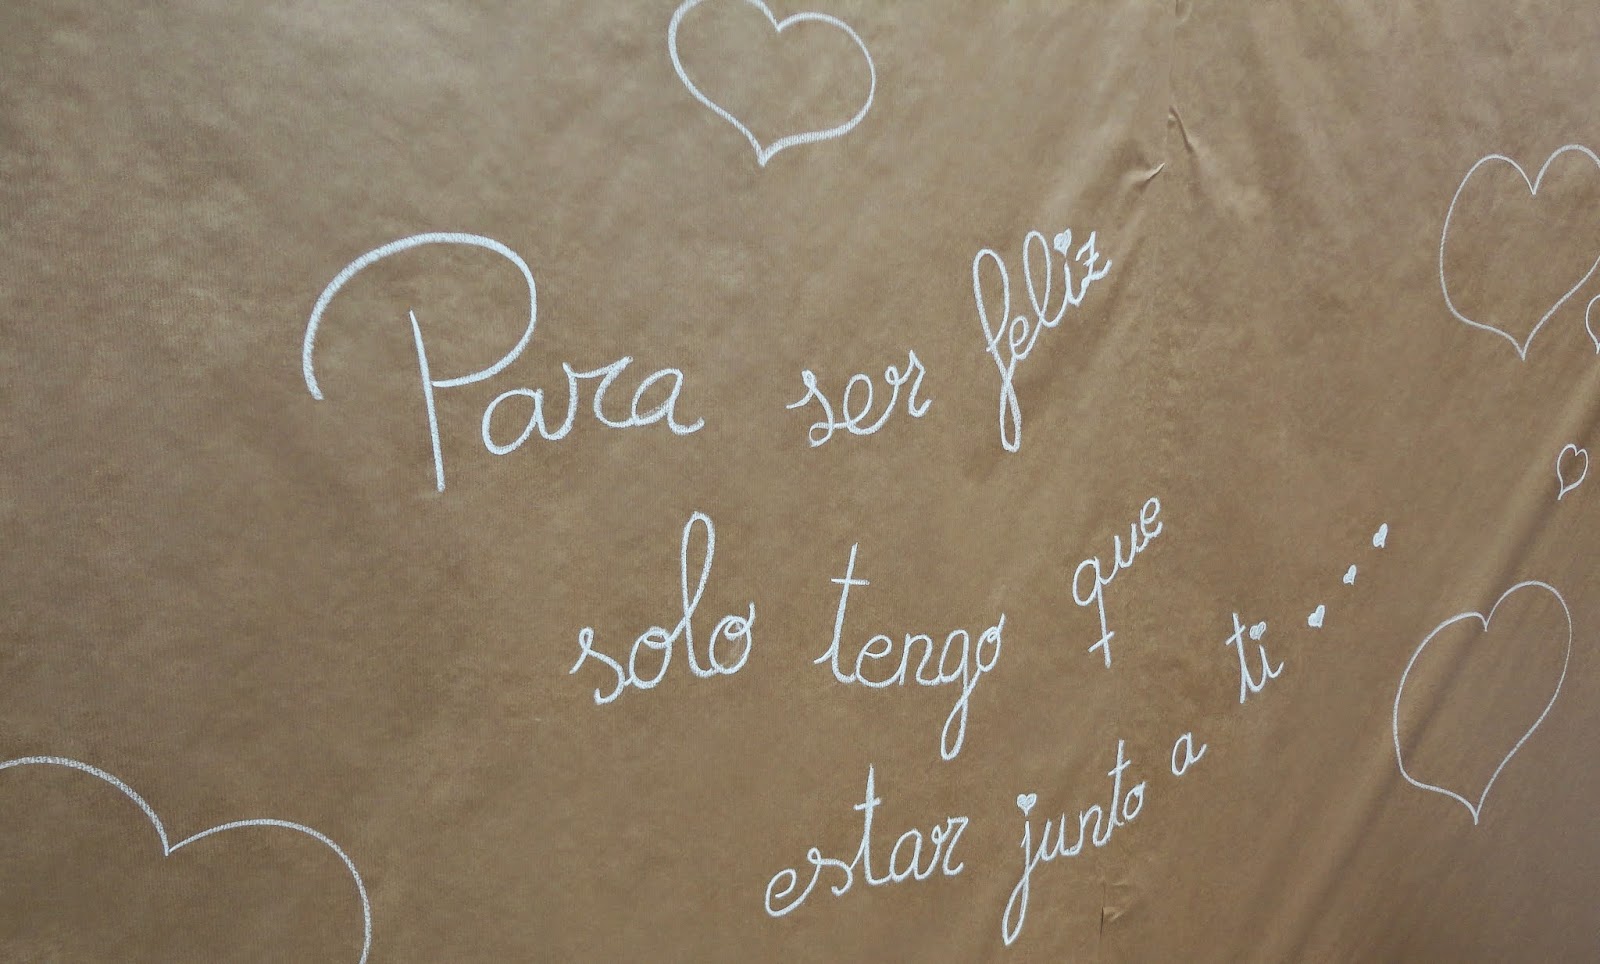 Para ser feliz
solo tengo que
estar junto a ti